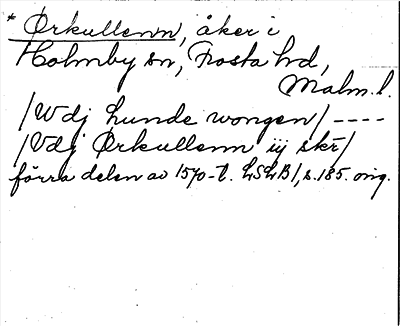 * Ørkullenn, åker i
Holmby sn, Frosta hd,
Malm. l.
/W dj Lunde wongen/ ----
/Vdj Ørkullenn iij skr/
förra delen av 1570-t. LSLB/, s. 185. orig.